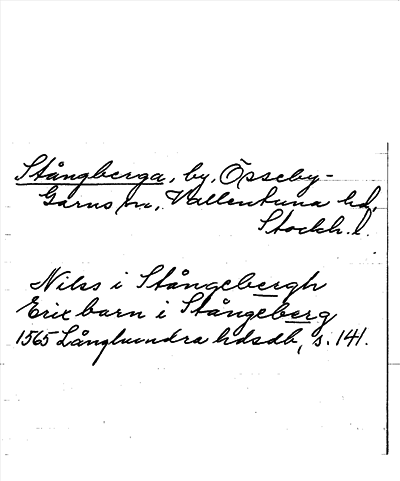 Stångberga, by, Össeby-
Garns sn, Vallentuna hd,
Stockh. l.
Nilss i Stångebergh
Eric barn i Stångeberg
1565 Långhundra hdsdb, s. 141.